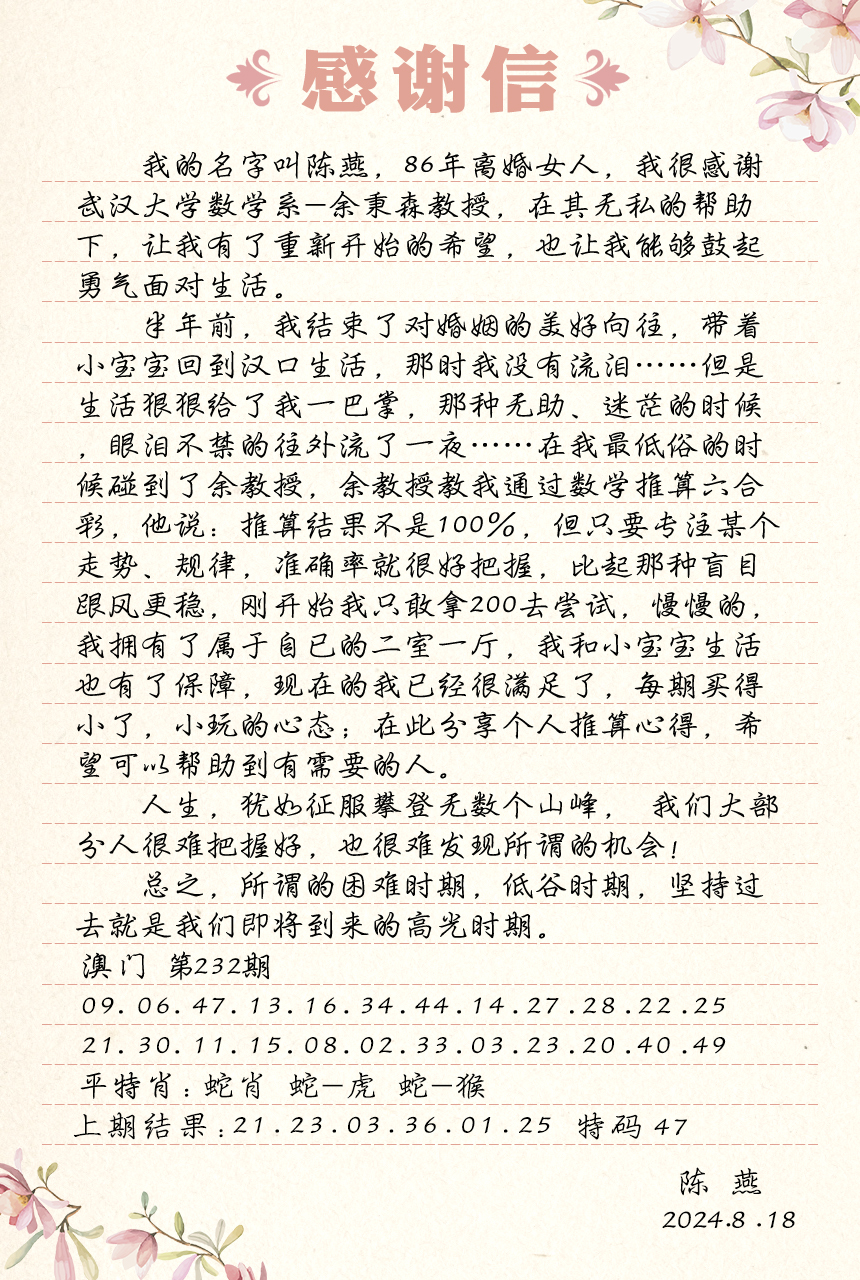 感谢信
我的名字叫陈燕，86年离婚女人，我很感谢
武汉大学数学系—余秉森教授，在其无私的帮助
下，让我有了重新开始的希望，也让我能够鼓起
勇气面对生活。
半年前，我结束了对婚姻的美好向往，带着
小宝宝回到汉口生活，那时我没有流泪……但是
生活狠狠给了我一巴掌，那种无助、迷茫的时候
，眼泪不禁的往外流了一夜……在我最低俗的时
候碰到了余教授，余教授教我通过数学推算六合
彩，他说：推算结果不是100%，但只要专注某个
走势、规律，准确率就很好把握，比起那种盲目
跟风更稳，刚开始我只敢拿200去尝试，慢慢的，
我拥有了属于自已的二室一厅，我和小宝宝生活
也有了保障，现在的我已经很满足了，每期买得
小了，小玩的心态；在此分享个人推算心得，希
望可以帮助到有需要的人。
人生，犹如征服攀登无数个山峰， 我们大部
分人很难把握好，也很难发现所谓的机会！
总之，所谓的困难时期，低谷时期，坚持过
去就是我们即将到来的高光时期。
澳门 第232期
09.06.47.13.16.34.44.14.27.28.22.25
21.30.11.15.08.02.33.03.23.20.40.49
平特肖：蛇肖 蛇—虎 蛇—猴
上期结果：21.23.03.36.01.25 特码 47
陈 燕
2024.8.18